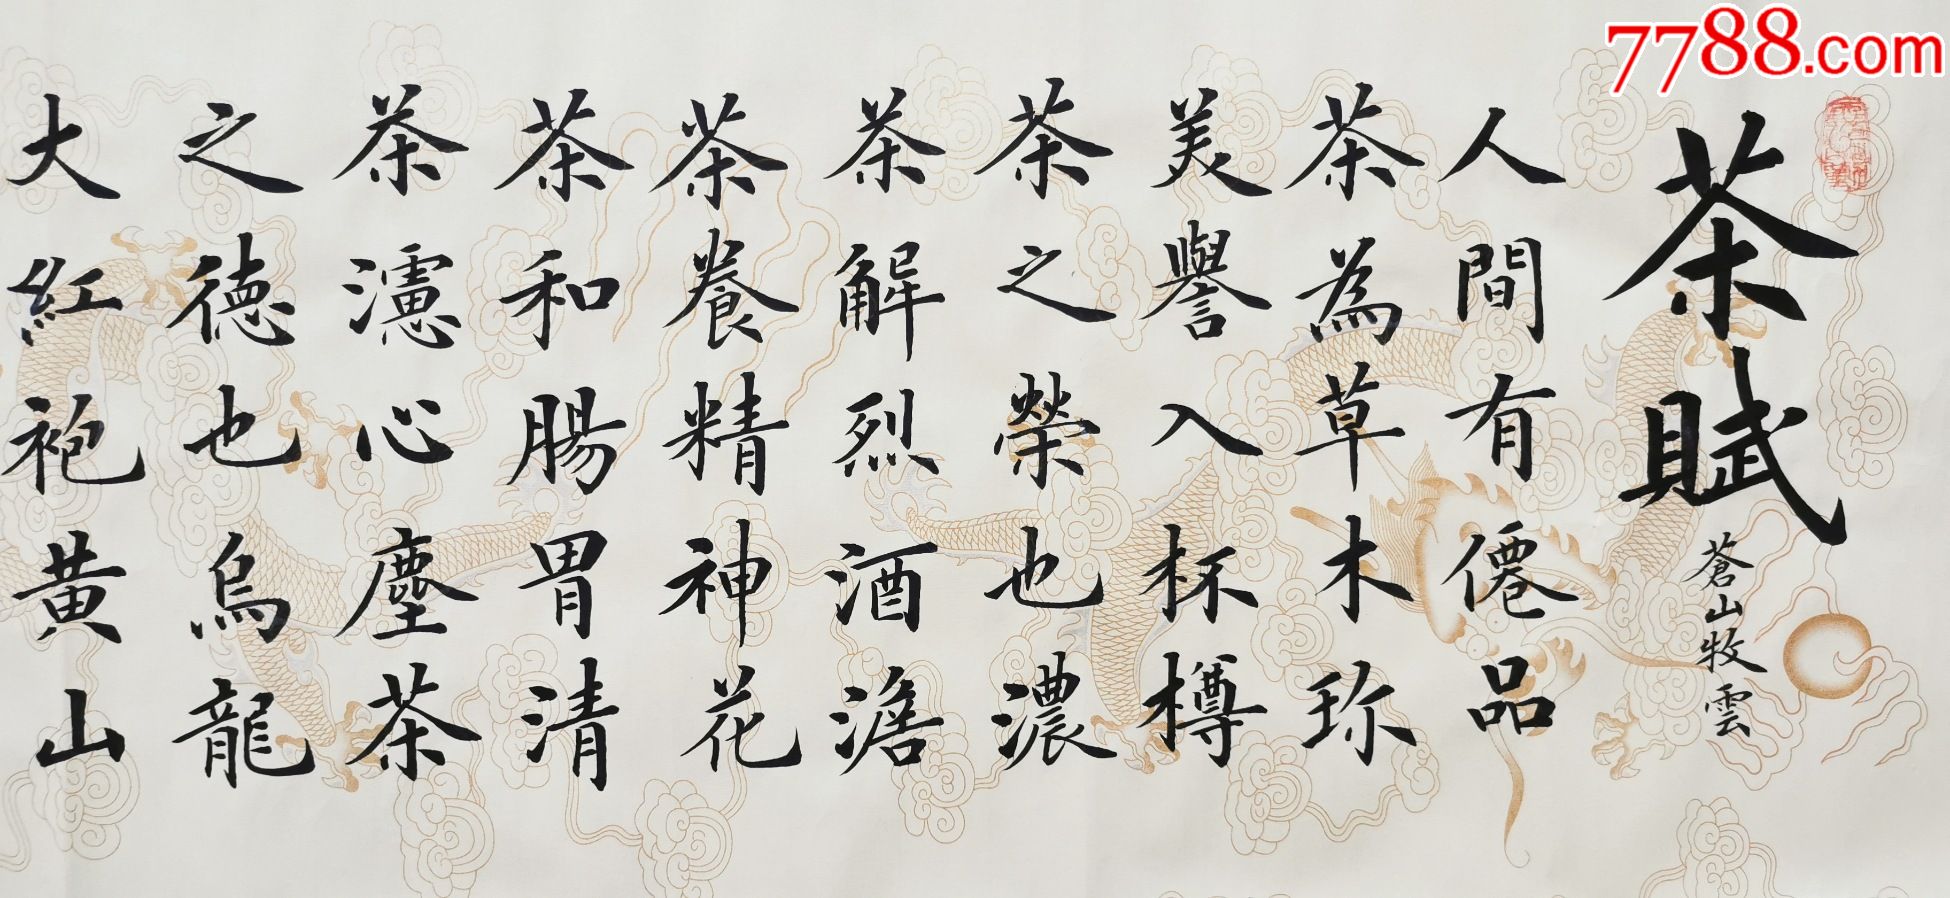 7788.com
茶賦
蒼山牧雲
人間有僊品
茶為草木珎
美譽入杯樽
茶之榮也濃
茶解烈酒澹
茶養精神花
茶和腸胃清
茶濾心塵茶
之德也烏龍
大紅袍黃山